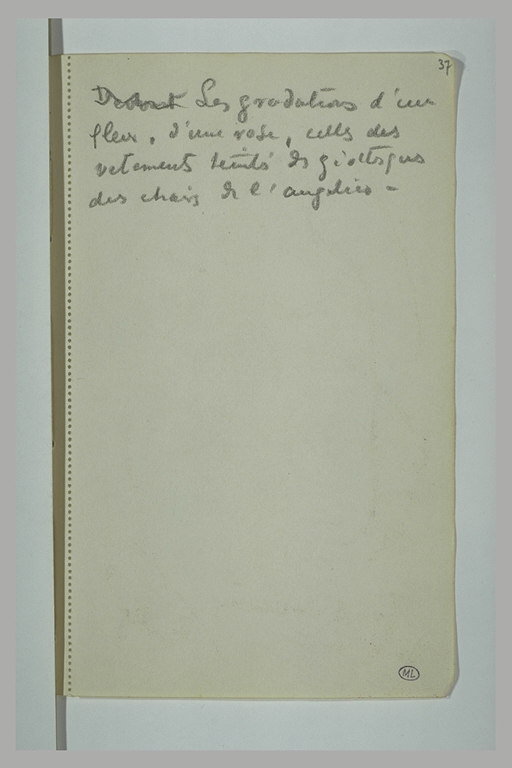 37
Les gradations d'une
fleur, d'une rose, celles des
vetements teintés des giottesques
des chairs de l'angelico -
ML